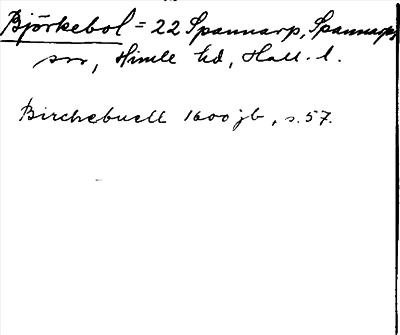 Björkebol = 22 Spannarp, Spannarps
sn, Himle hd, Hall. l.
Birchebuell 1600 jb, s. 57.